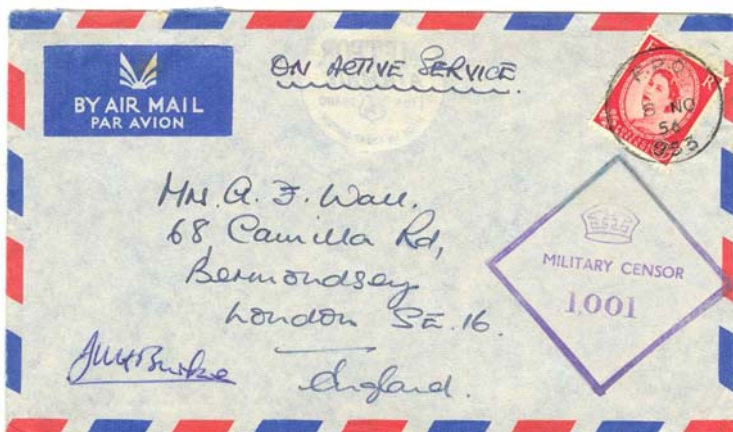 BY AIR MAIL
PAR AVION
ON ACTIVE SERVICE
E R
F.P.O.
6 NO
56
953
Mr. A. F. Wall.
68 Camilla Rd,
Bermondsey
London SE.16.
England.
MILITARY CENSOR
1,001